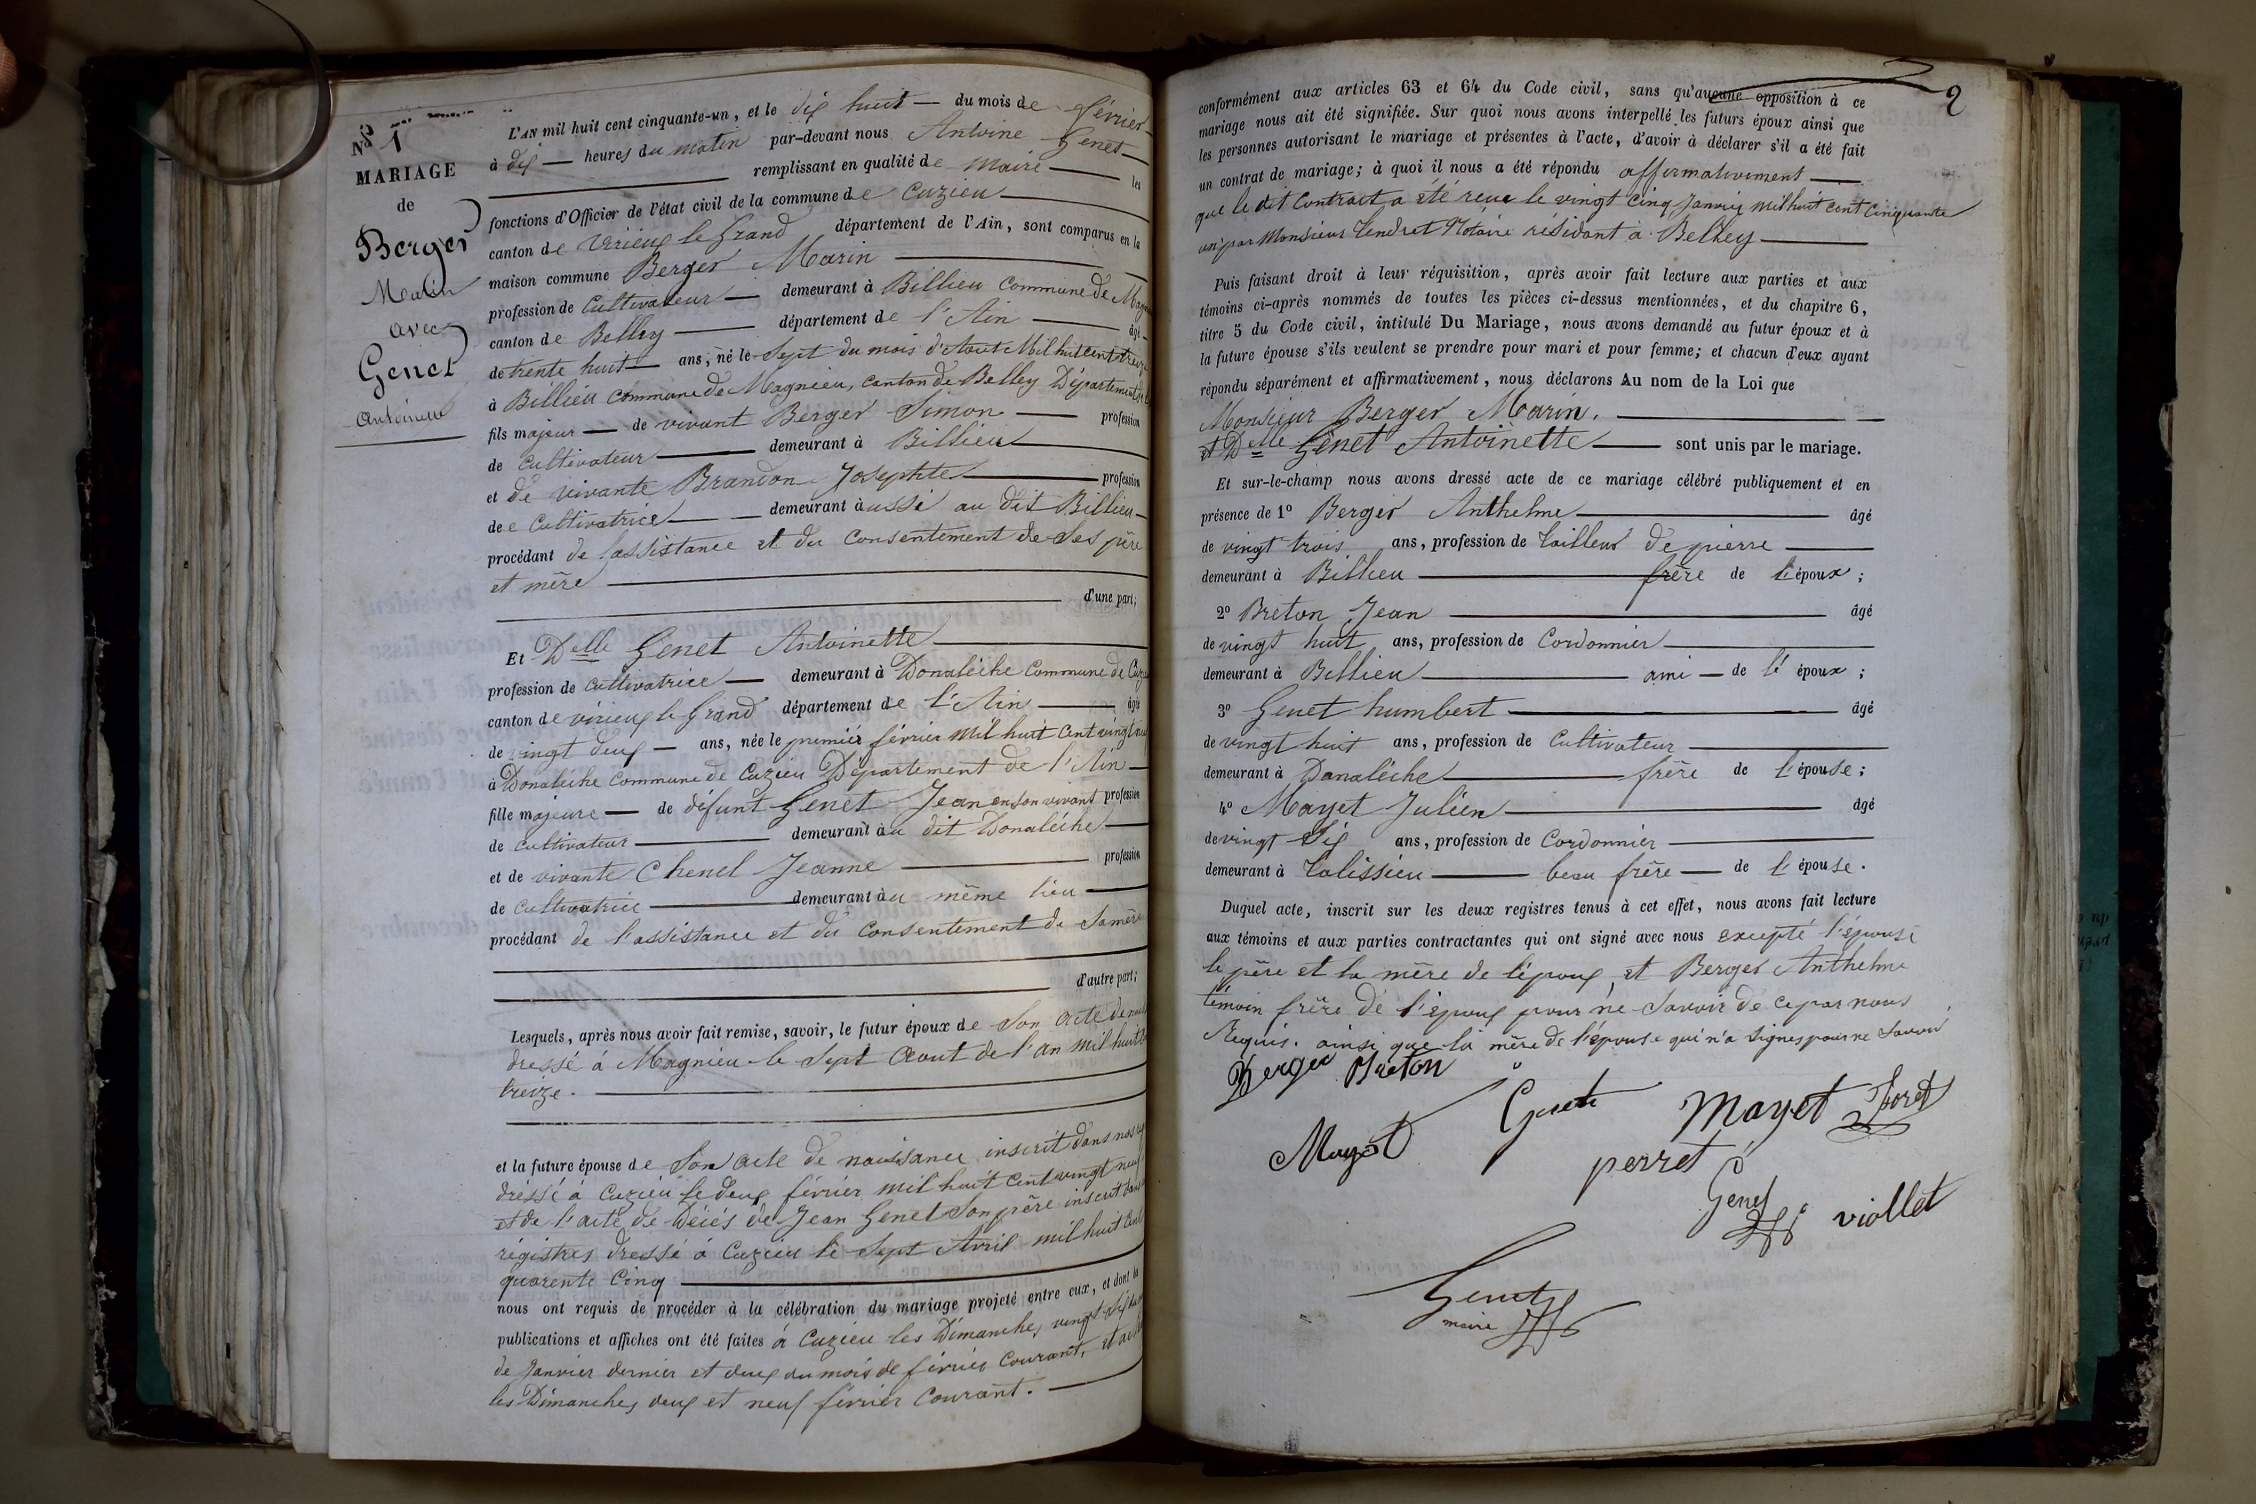 N° 1
MARIAGE
de
Berger
Marin
avec
Genet
Antoinette
L'AN mil huit cent cinquante-un, et le dix huit — du mois de février
à dix — heures du matin par-devant nous Antoine Genet
remplissant en qualité de maire — les
fonctions d'Officier de l'état civil de la commune de Cuzieu
canton de Virieux le Grand département de l'Ain, sont comparus en la
maison commune Berger Marin
profession de Cultivateur — demeurant à Billieu Commune de
canton de Belley — département de l'Ain — âgé
de trente huit — ans, né le Sept du mois d'Aout Mil huit cent treize
à Billieu Commune de Magnieu, canton de Belley Département
fils majeur — de vivant Berger Simon — profession
de Cultivateur — demeurant à Billieu
et de vivante Brandon Josephte — profession
de e Cultivatrice — demeurant àussi au dit Billieu
procédant de l'assistance et du Consentement de Ses père
et mère
d'une part;
Et Delle Genet Antoinette
profession de Cultivatrice — demeurant à Donalèche Commune de
canton de virieux le Grand département de l'Ain — âgée
de vingt deux — ans, née le premier février Mil huit Cent vingt
à Donalèche Commune de Cuzieu Département de l'Ain
fille majeure — de défunt Genet Jean en son vivant profession
de Cultivateur — demeurant àu dit Donalèche
et de vivante Chenel Jeanne — profession
de Cultivatrice — demeurant àu même lieu
procédant de l'assistance et du Consentement de Sa mère
d'autre part;
Lesquels, après nous avoir fait remise, savoir, le futur époux de Son acte de
dressé à Magnieu le Sept Aout de l'an mil huit
treize.
et la future épouse de Son acte de naissance inscrit dans nos
dressé à Cuzieu le deux février mil huit Cent vingt neuf
et de l'acte de Décés de Jean Genet Son père inscrit dans
régistres dressé à Cuzieu le Sept Avril mil huit Cent
quarente Cinq
nous ont requis de procéder à la célébration du mariage projeté entre eux, et dont les
publications et affiches ont été faites à Cuzieu les Dimanches vingt Six
de Janvier dernier et deux du mois de février Courant, et
les Dimanches deux et neuf février Courant.
2
conformément aux articles 63 et 64 du Code civil, sans qu'aucune opposition à ce
mariage nous ait été signifiée. Sur quoi nous avons interpellé les futurs époux ainsi que
les personnes autorisant le mariage et présentes à l'acte, d'avoir à déclarer s'il a été fait
un contrat de mariage; à quoi il nous a été répondu affirmativement
que le dit Contrat a été reçu le vingt Cinq Janvier mil huit cent Cinquante
un par Monsieur Tendret Notaire résidant à Belley
Puis faisant droit à leur réquisition, après avoir fait lecture aux parties et aux
témoins ci-après nommés de toutes les pièces ci-dessus mentionnées, et du chapitre 6,
titre 5 du Code civil, intitulé Du Mariage, nous avons demandé au futur époux et à
la future épouse s'ils veulent se prendre pour mari et pour femme; et chacun d'eux ayant
répondu séparément et affirmativement, nous déclarons Au nom de la Loi que
Monsieur Berger Marin.
et Delle Genet Antoinette — sont unis par le mariage.
Et sur-le-champ nous avons dressé acte de ce mariage célébré publiquement et en
présence de 1° Berger Anthelme — âgé
de vingt trois ans, profession de Tailleur de pierre
demeurant à Billieu — frère de l'époux;
2° Breton Jean — âgé
de vingt huit ans, profession de Cordonnier
demeurant à Billieu — ami — de l'époux;
3° Genet humbert — âgé
de vingt huit ans, profession de Cultivateur
demeurant à Danalèche — frère de l'épouse;
4° Mayet Julien — âgé
de vingt Six ans, profession de Cordonnier
demeurant à Talissieu — beau frère — de l'épouse.
Duquel acte, inscrit sur les deux registres tenus à cet effet, nous avons fait lecture
aux témoins et aux parties contractantes qui ont signé avec nous excepté l'épouse
le père et la mère de l'époux, et Berger Anthelme
témoin frère de l'époux pour ne Savoir de ce par nous
Requis. ainsi que la mère de l'épouse qui n'a signes pour ne Savoir
Berger Breton
Genet Mayet
Mayet perret
Genet viollet
Genet
maire